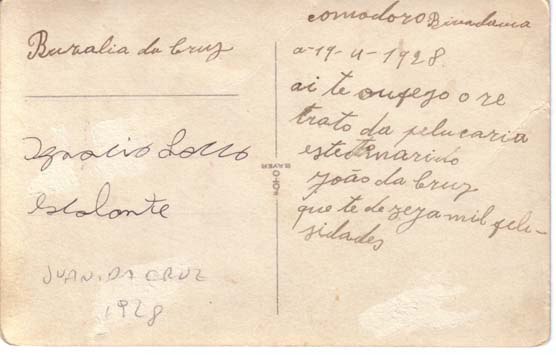 Buralia da Cruz
Ignacio Lollo
escolonte
JUAN DA CRUZ
1928
BAYER
comodoro Bivadavia
a-19-4-1928
ai te oufego o re
trato da pelucaria
esteтmarido
João da Cruz
que te dezeja mil felu-
sidades